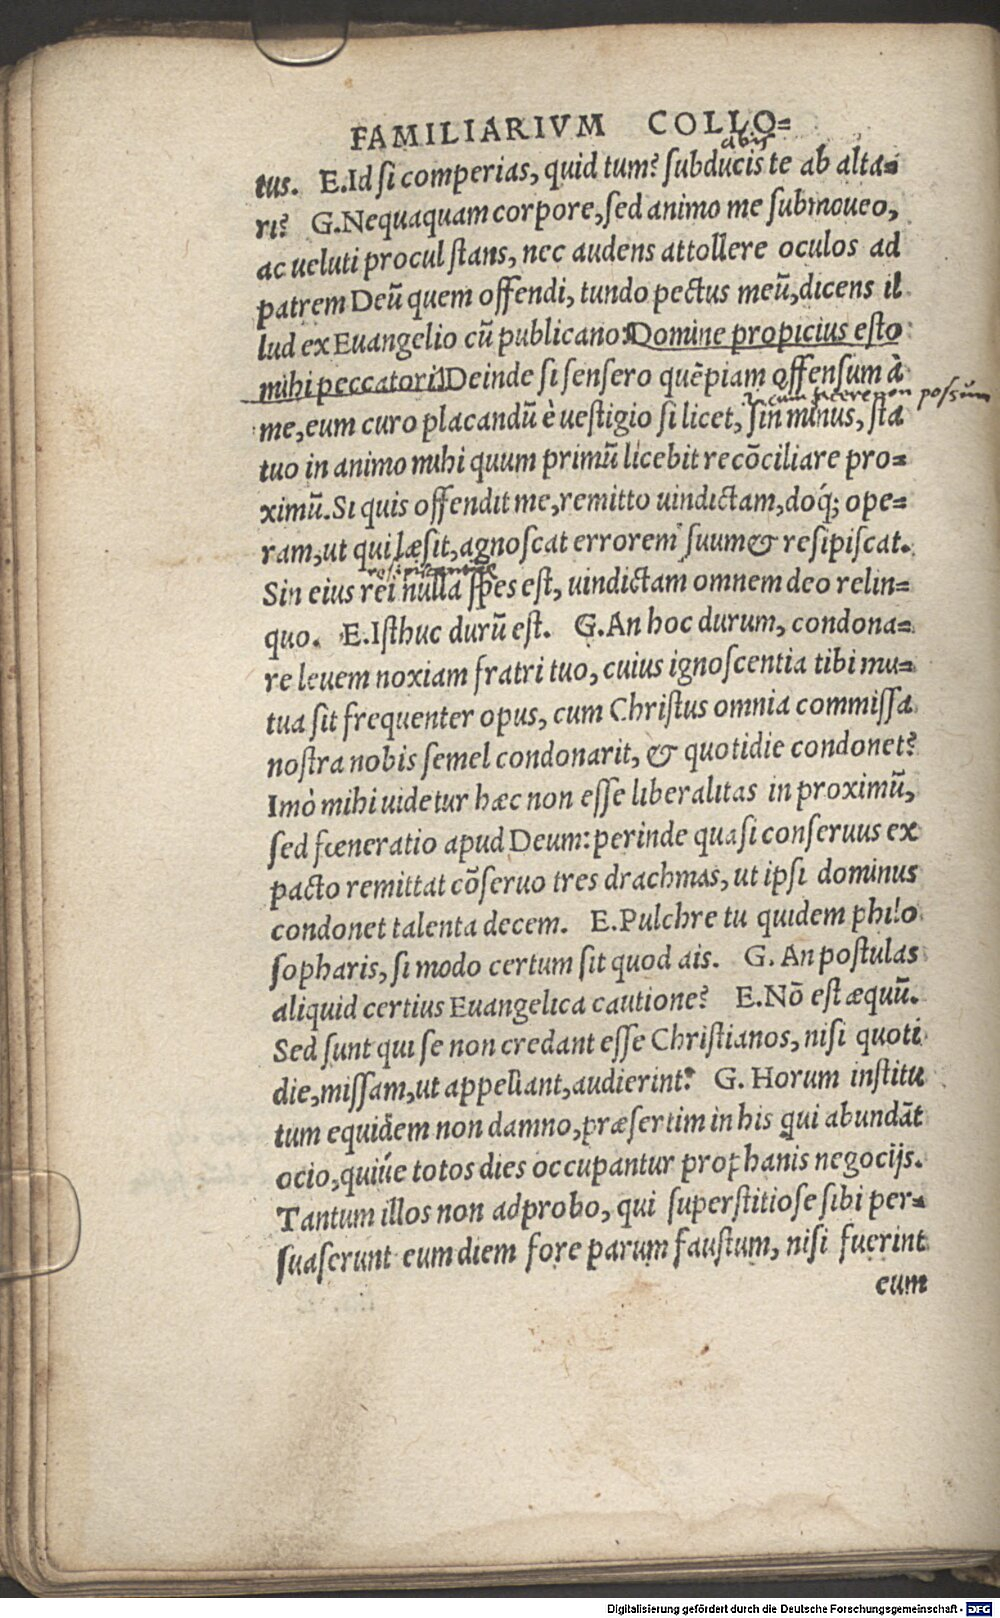 FAMILIARIVM COLLO=
abis
tus. E.Id si comperias, quid tum? subducis te ab alta=
ri? G.Nequaquam corpore, sed animo me submoueo,
ac ueluti procul stans, nec audens attollere oculos ad
patrem Deũ quem offendi, tundo pectus meũ, dicens il
lud ex Euangelio cũ publicano: Domine propicius esto
mihi peccatori. Deinde si sensero quẽpiam offensum à
facere non possum
me, eum curo placandũ è uestigio si licet, sin minus, sta
tuo in animo mihi quum primũ licebit recõciliare pro=
ximũ. Si quis offendit me, remitto uindictam, doq́; ope=
ram, ut qui læsit, agnoscat errorem suum & resipiscat.
resipiscentiae
Sin eius rei nulla spes est, uindictam omnem deo relin=
quo. E.Isthuc durũ est. G.An hoc durum, condona=
re leuem noxiam fratri tuo, cuius ignoscentia tibi mu=
tua sit frequenter opus, cum Christus omnia commissa
nostra nobis semel condonarit, & quotidie condonet?
Imò mihi uidetur hæc non esse liberalitas in proximũ,
sed fœneratio apud Deum: perinde quasi conseruus ex
pacto remittat cõseruo tres drachmas, ut ipsi dominus
condonet talenta decem. E.Pulchre tu quidem philo
sopharis, si modo certum sit quod ais. G. An postulas
aliquid certius Euangelica cautione? E.Nõ est æquũ.
Sed sunt qui se non credant esse Christianos, nisi quoti
die, missam, ut appellant, audierint? G. Horum institu
tum equidem non damno, præsertim in his qui abundãt
ocio, quiúe totos dies occupantur prophanis negocijs.
Tantum illos non adprobo, qui superstitiose sibi per=
suaserunt eum diem fore parum faustum, nisi fuerint
eum
Digitalisierung gefördert durch die Deutsche Forschungsgemeinschaft - DFG